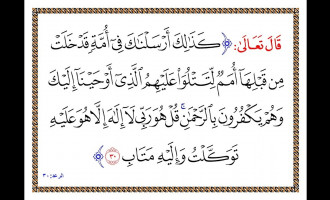 قَالَ تَعَالَىٰ: ﴿كَذَٰلِكَ أَرْسَلْنَاكَ فِي أُمَّةٍ قَدْ خَلَتْ
مِن قَبْلِهَا أُمَمٌ لِّتَتْلُوَا۟ عَلَيْهِمُ الَّذِي أَوْحَيْنَا إِلَيْكَ
وَهُمْ يَكْفُرُونَ بِالرَّحْمَٰنِ ۚ قُلْ هُوَ رَبِّي لَا إِلَٰهَ إِلَّا هُوَ عَلَيْهِ
تَوَكَّلْتُ وَإِلَيْهِ مَتَابِ ٣٠﴾
الرعد: ٣٠